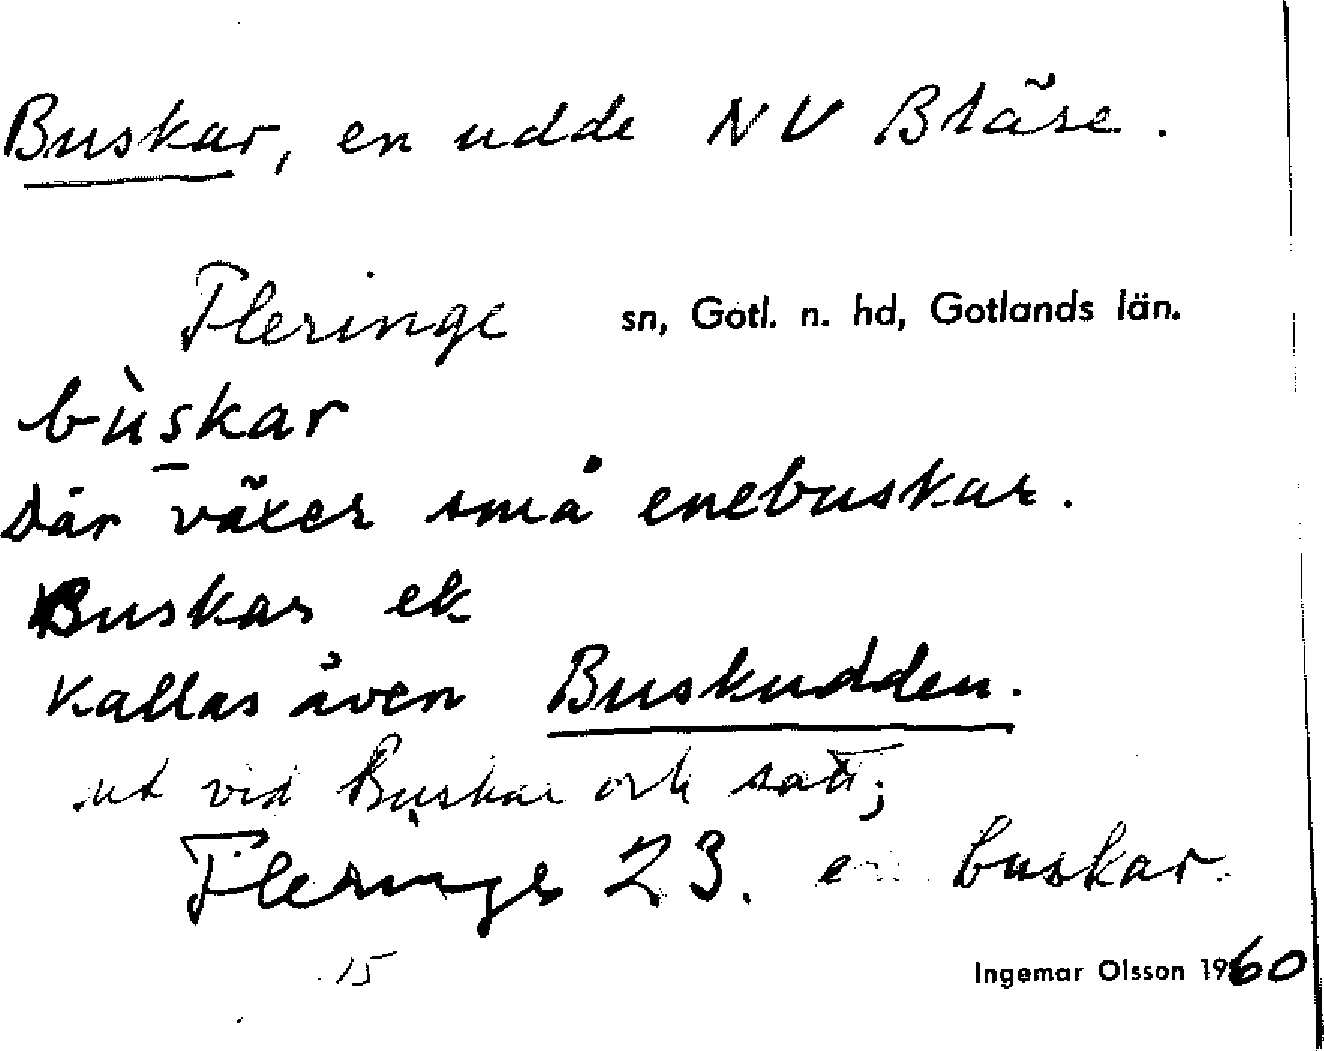 Buskar, en udde NV Bläse.
Fleringe sn, Gotl. n. hd, Gotlands län.
bùskar
Där växer små enebuskar.
Buskar ek
Kallas även Buskudden.
ut vid Buskar och satt;
Fleringe 23. en buskar
15
Ingemar Olsson 1960